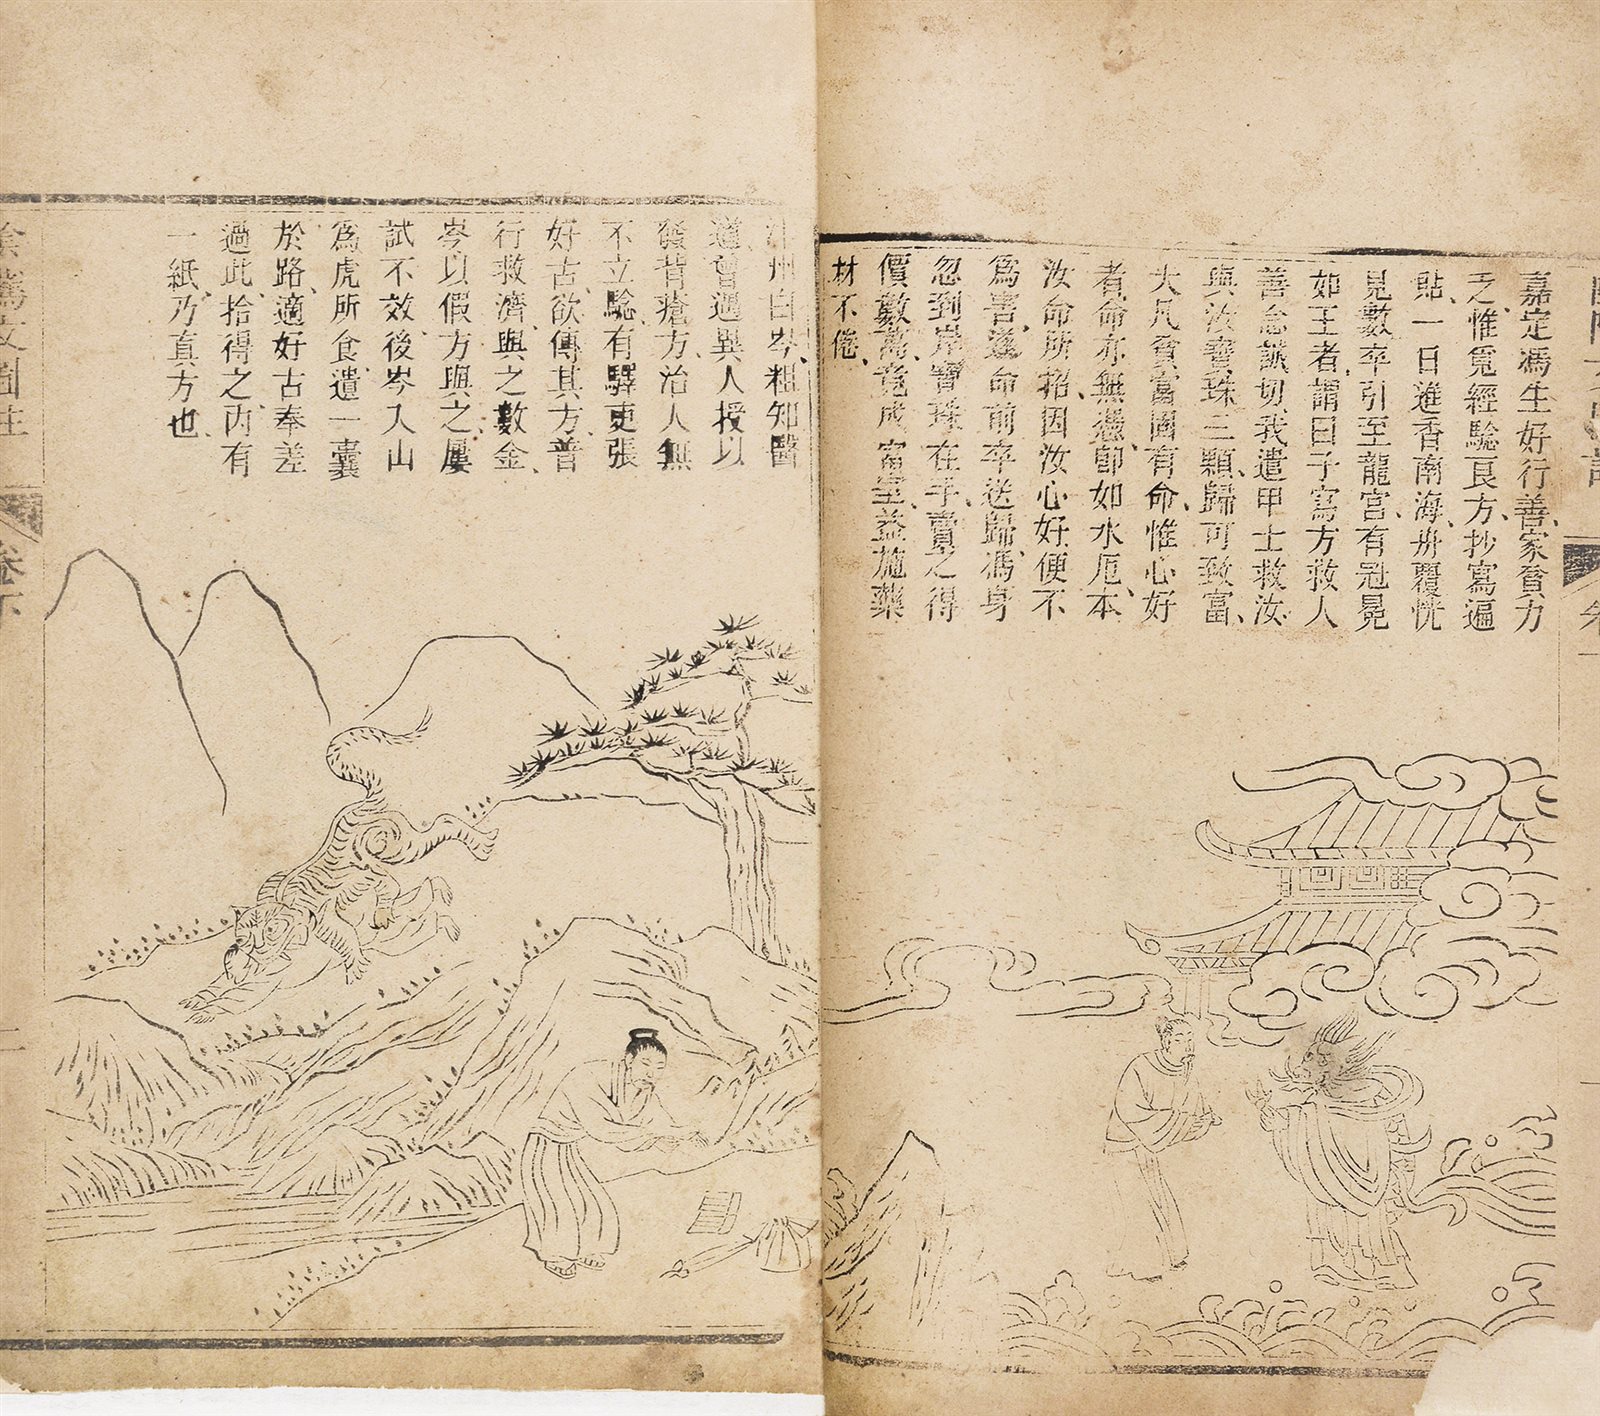 嘉定馮生好行善、家貧力
乏、惟覓經驗良方、抄寫遍
貼、一日進香南海、舟覆恍
見數卒引至龍宮、有冠冕
如王者、謂曰子寫方救人
善念誠切、我遣甲士救汝、
與汝寶珠三顆、歸可致富、
大凡貧富固有命、惟心好
者、命亦無憑、卽如水厄、本
汝命所招、因汝心好、便不
爲害、遂命前卒送歸、馮身
忽到岸、寶珠在手、賣之得
價數萬、竟成富室、益施藥
材不倦、
州白岑、粗知醫
道、曾遇異人授以
發背瘡方、治人無
不立驗、有驛吏張
好古、欲傳其方、普
行救濟、與之數金、
岑以假方與之、屢
試不效、後岑入山
爲虎所食、遺一囊
於路、適好古奉差
過此、拾得之、內有
一紙、乃真方也、
陰騭文圖註
卷下
二